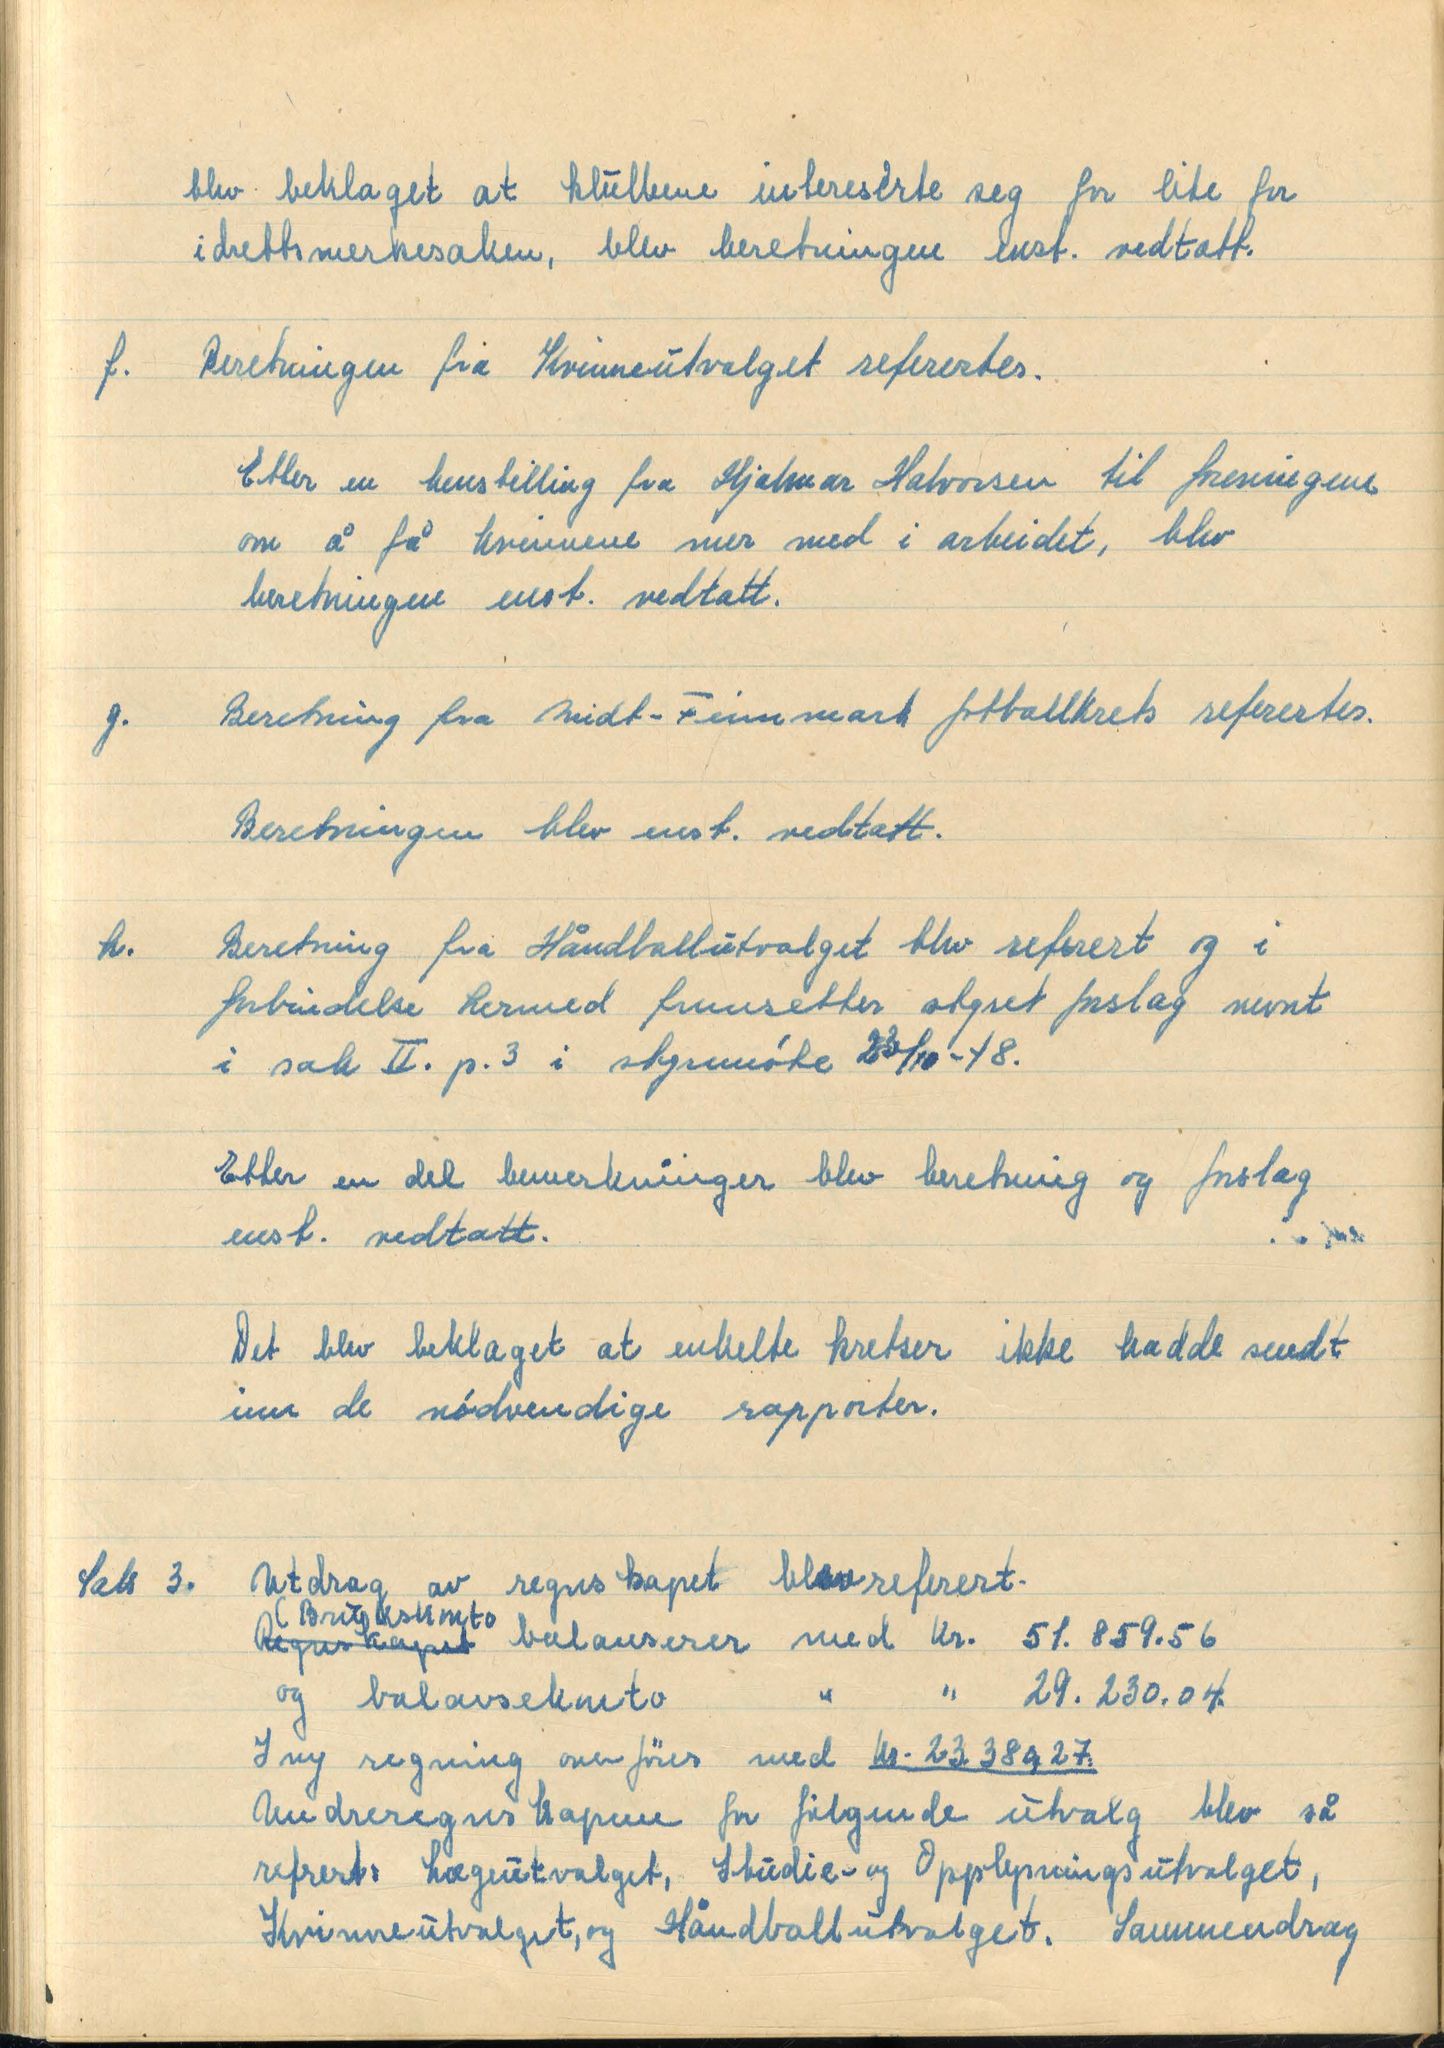 blev beklaget at klubbene interesērte seg for lite for
idrettsmerkesaken, blev beretningen enst. vedtatt.
f. Beretningen fra Kvinneutvalget refertes.
Etter en henstilling fra Hjalmar Halvorsen til foreningene
om å få kvinnene mer med i arbeidet, blev
beretningen enst. vedtatt.
g. Beretning fra Midt-Finnmark fotballkrets referertes.
Beretningen blev enst. vedtatt.
h. Beretning fra Håndballutvalget blev referert og i
forbindelse hermed fremsetter styret forslag nevnt
i sak II. p. 3 i styremöte 23/10-48.
Etter en del bemerkninger blev beretning og forslag
enst. vedtatt.
Det blev beklaget at enkelte kretser ikke hadde sendt
inn de nödvendige rapporter.
Sak 3. Utdrag av regnskapet blev referert.
(Driftskonto
Regnskapet balanserer med kr. 51.859.56
og balansekonto " " 29.230.04.
I ny regning overföres med kr. 23.389,27.
Underregnskapene for fölgende utvalg blev så
refrert: Lægeutvalget, Studie- og Opplysningsutvalget,
Kvinneutvalget, og Håndballutvalget. Sammendrag